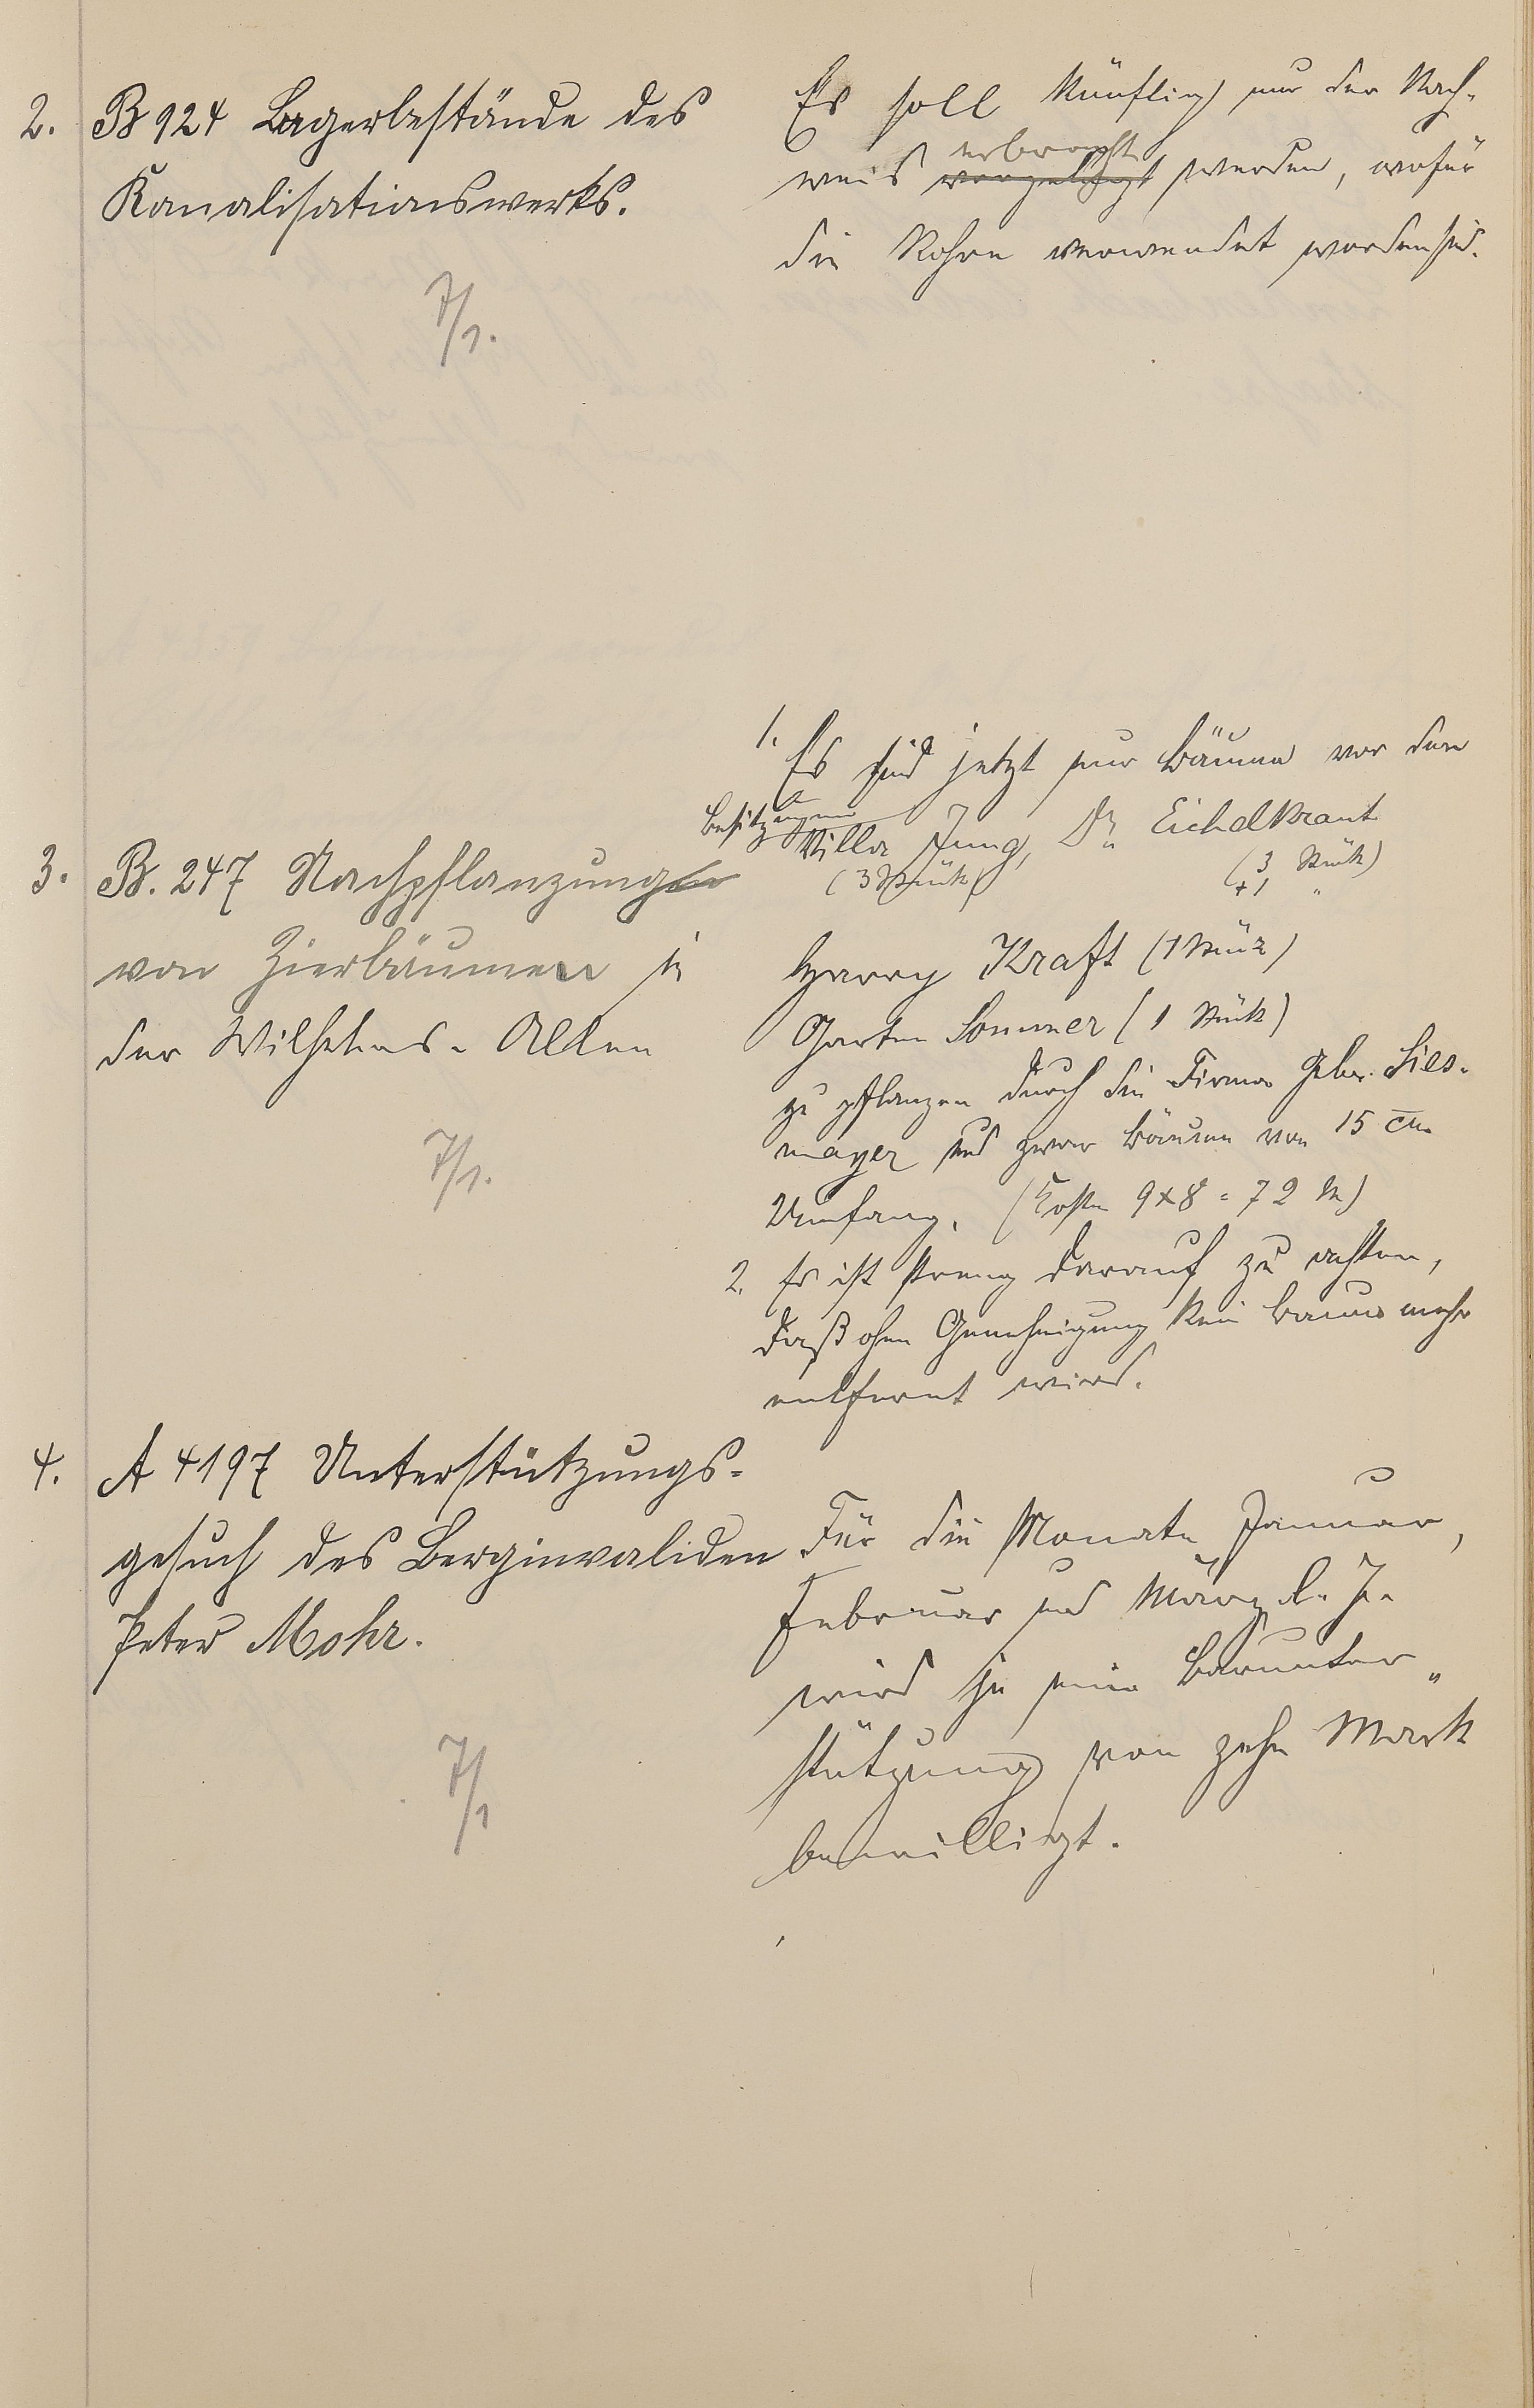 2. B 924 Lagerbestände des
Kanalisationswerks.
7/1.
Es soll künftig nur der Nach-
weis vorgelegt erbracht werden, wofür
die Rohre verwendet worden sind.
3. B. 247 Nachpflanzungen
von Zierbäumen in
der Wilhelms-Allee
7/1.
1. Es sind jetzt nur Bäume vor den
Besitzungen
Villa Jung, Dr. Eichelkraut
(3 Stück) (3 Stück)
+1 "
Harry Kraft (1 Stück)
Garten Sommer (1 Stück)
zu pflanzen durch die Firma Gebr. Sies-
mayer und zwar Bäume von 15 cm
Umfang. (Kosten 9x8 = 72 M)
2. Es ist streng darauf zu achten,
daß ohne Genehmigung kein Baum mehr
entfernt wird.
4. A 4197 Unterstützungs-
gesuch des Berginvaliden
Peter Mohr.
7/1
Für die Monate Januar,
Februar und März d. J.
wird je eine Barunter-
stützung von zehn Mark
bewilligt.